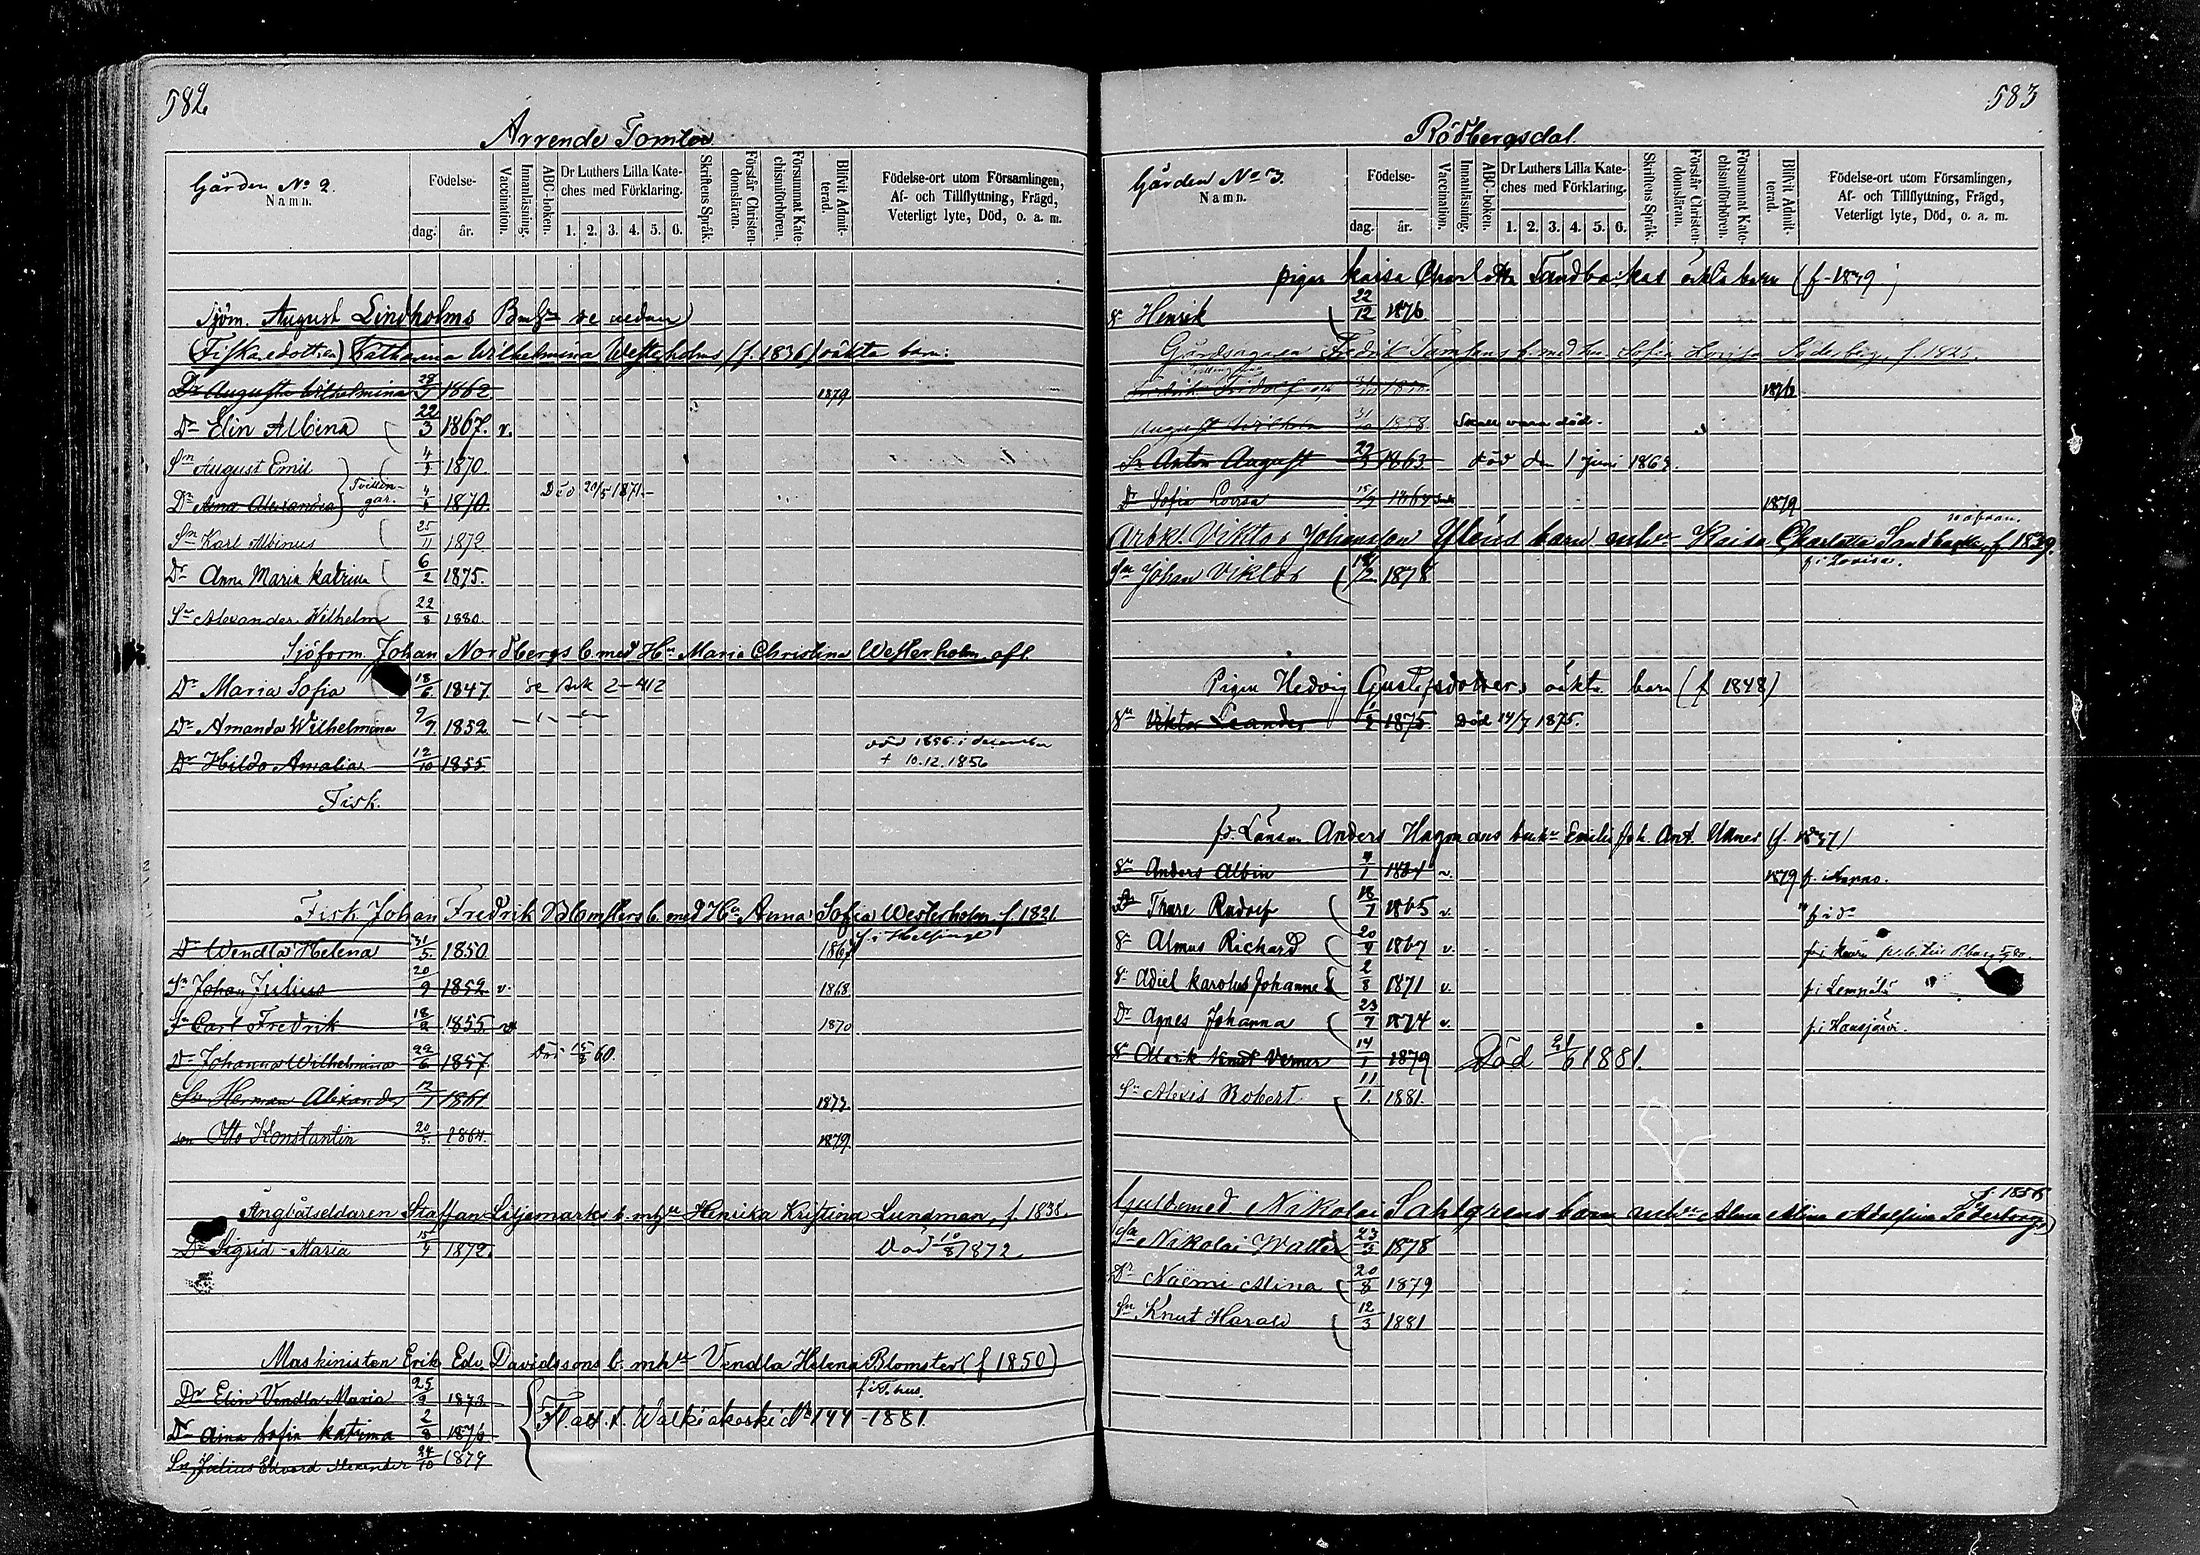 582.
Arrende Tomter
Gården No 2.
Namn.
Födelse-
dag. år.
Vaccination.
Innanläsning.
ABC-boken.
Dr Luthers Lilla Kate-
ches med Förklaring.
1. 2. 3. 4. 5. 6.
Skriftens Språk.
Förstår Christen-
domsläran.
Försummat Kate-
chismiförhören.
Blifvit Admit-
terad.
Födelse-ort utom Församlingen,
Af- och Tillflyttning, Frägd,
Veterligt lyte, Död, o. a. m.
Sjöm. August Lindholms Bmhu se nedan)
Katharina Wilhelmina Westerholms (f. 1836) oäkta barn:
Dr Augusta Wilhelmina 1862 1879
Dr Elin Albina 22/3 1867. v.
Sn August Emil 4/4 1870
Tvillin-
gar.
Dr Anna Alexandra 4/4 1870 Död 20/5 1871.-
Sn Karl Albinus 25/11 1872
Dr Anna Maria Katrina 6/2 1875.
Sn Alexander Wilhelm 22/8 1880.
Sjöform. Johan Nordbergs b. med Hu Maria Christina Westerholm afl.
Dr Maria Sofia 18/6 1847. se Ark 2-412
Dr Amanda Wilhelmina 9/9 1852
död 1856 i december
Dr Hilda Amalia 12/10 1855. + 10.12.1856
Fisk.
Fisk Johan Fredrik Blomsters b. med Hu Anna Sofia Westerholm f. 1821.
f. i Helsinge
Dr Wendla Helena 31/5 1850
Sn Johan Julius 20/9 1852 v. 1868
Sn Carl Fredrik 1855 1870
Dr Johanna Wilhelmina 22/6 1857. Död 15/8 60.
Sn Herman Alexander 12/1 1861 1877
son Otto Konstantin 20/5 1864 1879
Ångbåtseldaren Staffan Liljemarks b. mhu Henrika Kristina Lundman, f. 1838.
Dr Sigrid-Maria 15/4 1872. Död 10/8 1872
Maskinisten Erik Edv. Davidssons b. mhu Vendla Helena Blomster (f 1850)
Dr Elin Vendla Maria 25/9 1873
Dr Aina Sofia Katrina 2/8 1876 Fl. att. t. Walkiakoski No 144 -1881.
Sn Julius Edvard Alexander 24/10 1879
583
Rödbergsdal.
Gården No 3.
Namn.
Födelse-
dag. år.
Vaccination.
Innanläsning.
ABC-boken.
Dr Luthers Lilla Kate-
ches med Förklaring.
1. 2. 3. 4. 5. 6.
Skriftens Språk.
Förstår Christen-
domsläran.
Försummat Kate-
chismiförhören.
Blifvit Admit-
terad.
Födelse-ort utom Församlingen,
Af- och Tillflyttning, Frägd,
Veterligt lyte, Död, o. a. m.
pigan Kaisa Charlotta Sandbackas oäkta barn (f-1839.)
Sn Henrik 22/12 1876
Gårdsägaren Fredrik b. med hu Sofia Lovisa Söderberg, f. 1825.
Fredrik Fridolf 1876
August Wilhelm 31/10 1858 Skall vara död.
Sn Anton August 1863 död den 1 Juni 1869
Dr Sofia Lovisa 15/9 1864 1879
Arbkl. Viktor Johansson barn mhu Kaisa Charlotta Sandbacka, f 1839.
f i Lovisa.
Sn Johan Viktor 1878
Pigan Hedvig Gustafsdotters oäkta barn (f 1848)
Sn Viktor Leander 1875. Död 14/7 1875.
fd. Länsm Anders Hagmans b mhu Emilia Joh. Ant. (f. 1837)
Sn Anders Albin 1864 v. 1879
Thure Rudolf 18/7 1865 v. f i do
Sn Almus Richard 20/9 1867 v.
Sn Adiel Karolus Johannes 2/8 1871 v. f i Lempälä
Dr Agnes Johanna 23/7 1874 v. f i Hausjärvi.
Sn Alarik Knut Verner 14/1 1879 Död 21/6 1881.
Sn Alexis Robert 11/1 1881
f. 1856
Guldsmed Nikolai Sahlgrens barn mhu Alma Mina Adolfina Söderberg)
Sn Nikolai Walter 23/3 1878
Dr Naëmi Alina 20/8 1879
Sn Knut Harald 12/3 1881